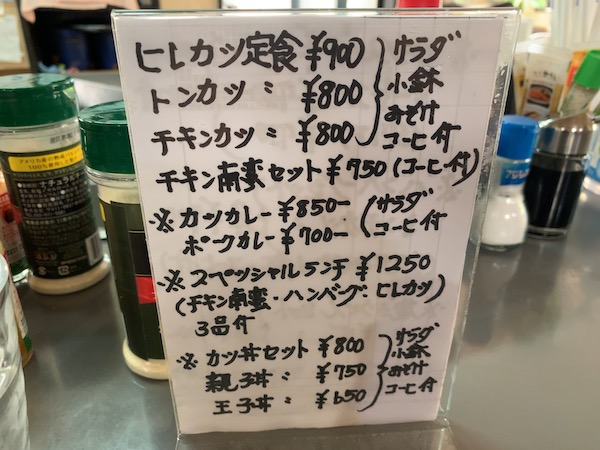 ヒレカツ定食 ¥900
トンカツ 〃 ¥800
チキンカツ 〃 ¥800
サラダ
小鉢
みそ汁
コーヒ付
チキン南蛮セット ¥750 (コーヒ付)
※カツカレー ¥850-
ポークカレー ¥700-
サラダ
コーヒ付
※スペッシャルランチ ¥1250
(チキン南蛮・ハンバグ・ヒレカツ)
3品付
※カツ丼セット ¥800
親子丼 〃 ¥750
玉子丼 〃 ¥650
サラダ
小鉢
みそ汁
コーヒ付